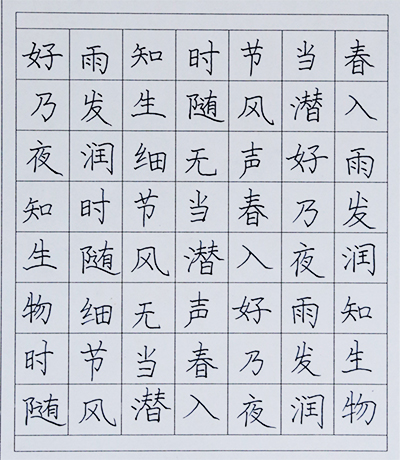 好雨知时节当春
乃发生随风潜入
夜润细无声好雨
知时节当春乃发
生随风潜入夜润
物细无声好雨知
时节当春乃发生
随风潜入夜润物